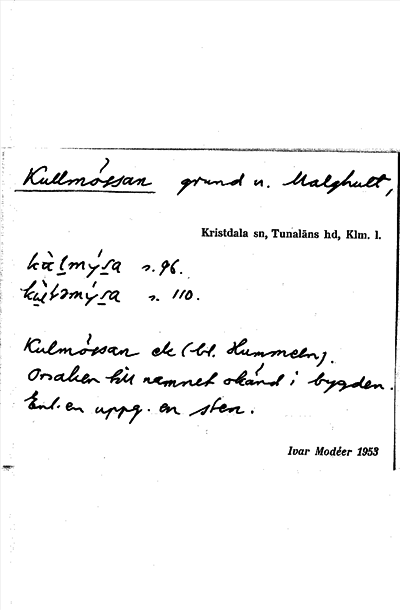 Kullmóssan grund n. Malghult,
Kristdala sn, Tunaläns hd, Klm. l.
s. 96.
s. 110.
Kulmóssan ek (bl. Hummeln).
Orsaken till namnet okänd i bygden.
Enl. en uppg. en sten.
Ivar Modéer 1953